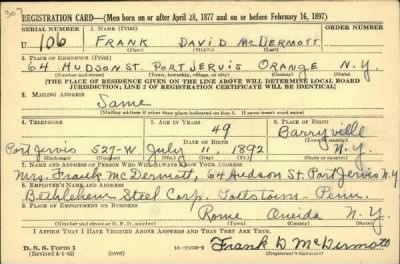 307
REGISTRATION CARD—(Men born on or after April 28, 1877 and on or before February 16, 1897)
SERIAL NUMBER 1. NAME (Print) ORDER NUMBER
U 106 FRANK DAVID McDERMOTT
(First) (Middle) (Last)
2. PLACE OF RESIDENCE (Print)
64 HUDSON ST. PORT JERVIS ORANGE N.Y.
(Number and street) (Town, township, village, or city) (County) (State)
[THE PLACE OF RESIDENCE GIVEN ON THE LINE ABOVE WILL DETERMINE LOCAL BOARD
JURISDICTION; LINE 2 OF REGISTRATION CERTIFICATE WILL BE IDENTICAL]
3. MAILING ADDRESS
Same
[Mailing address if other than place indicated on line 2. If same insert word same]
4. TELEPHONE 5. AGE IN YEARS 6. PLACE OF BIRTH
49 Barryville
DATE OF BIRTH
Port Jervis 527-W July 11, 1892 N.Y.
(Exchange) (Number) (Mo.) (Day) (Yr.) (State or country)
7. NAME AND ADDRESS OF PERSON WHO WILL ALWAYS KNOW YOUR ADDRESS
Mrs. Frank McDermott, 64 Hudson St. Port Jervis N.Y.
8. EMPLOYER'S NAME AND ADDRESS
Bethlehem Steel Corp. Pottstown - Penn.
9. PLACE OF EMPLOYMENT OR BUSINESS
Rome Oneida N.Y.
(Number and street or R. F. D. number) (Town) (County) (State)
I AFFIRM THAT I HAVE VERIFIED ABOVE ANSWERS AND THAT THEY ARE TRUE.
D. S. S. Form 1
(Revised 4-1-42) (over)
Frank D McDermott
(Registrant's signature)